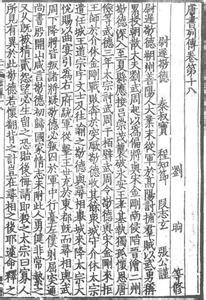 唐書列傳卷第一八
劉昫 等修
尉遲敬德 秦叔寶 程知節 段志玄 張公謹
尉遲敬德朔州善陽人大業末從軍於高陽討捕群賊以武勇稱
累授朝散大夫劉武周起以為偏將與宋金剛南侵陷晉澮二州
敬德深入至夏縣應接呂崇茂襲破永安王孝基執獨孤懷恩唐
儉等武德三年太宗討武周於柏壁武周令敬德與宋金剛來拒
王師於介休金剛戰敗奔於突厥敬德收其餘眾城守介休太宗
遣任城王道宗宇文士及往諭之敬德與尋相舉城來降太宗大
悅賜以曲宴引為右一府統軍從擊王世充於東都既而尋相與武
周下降將皆叛諸將疑敬德必叛囚於軍中行臺左僕射屈突通
尚書殷開山咸言敬德初歸國家情志未附此人勇健非常縶之
又久既被猜貳怨望必生留之恐貽後悔請即殺之太宗曰寡人
所見有異於此敬德若懷翻背之計豈在尋相之後耶遽命釋之